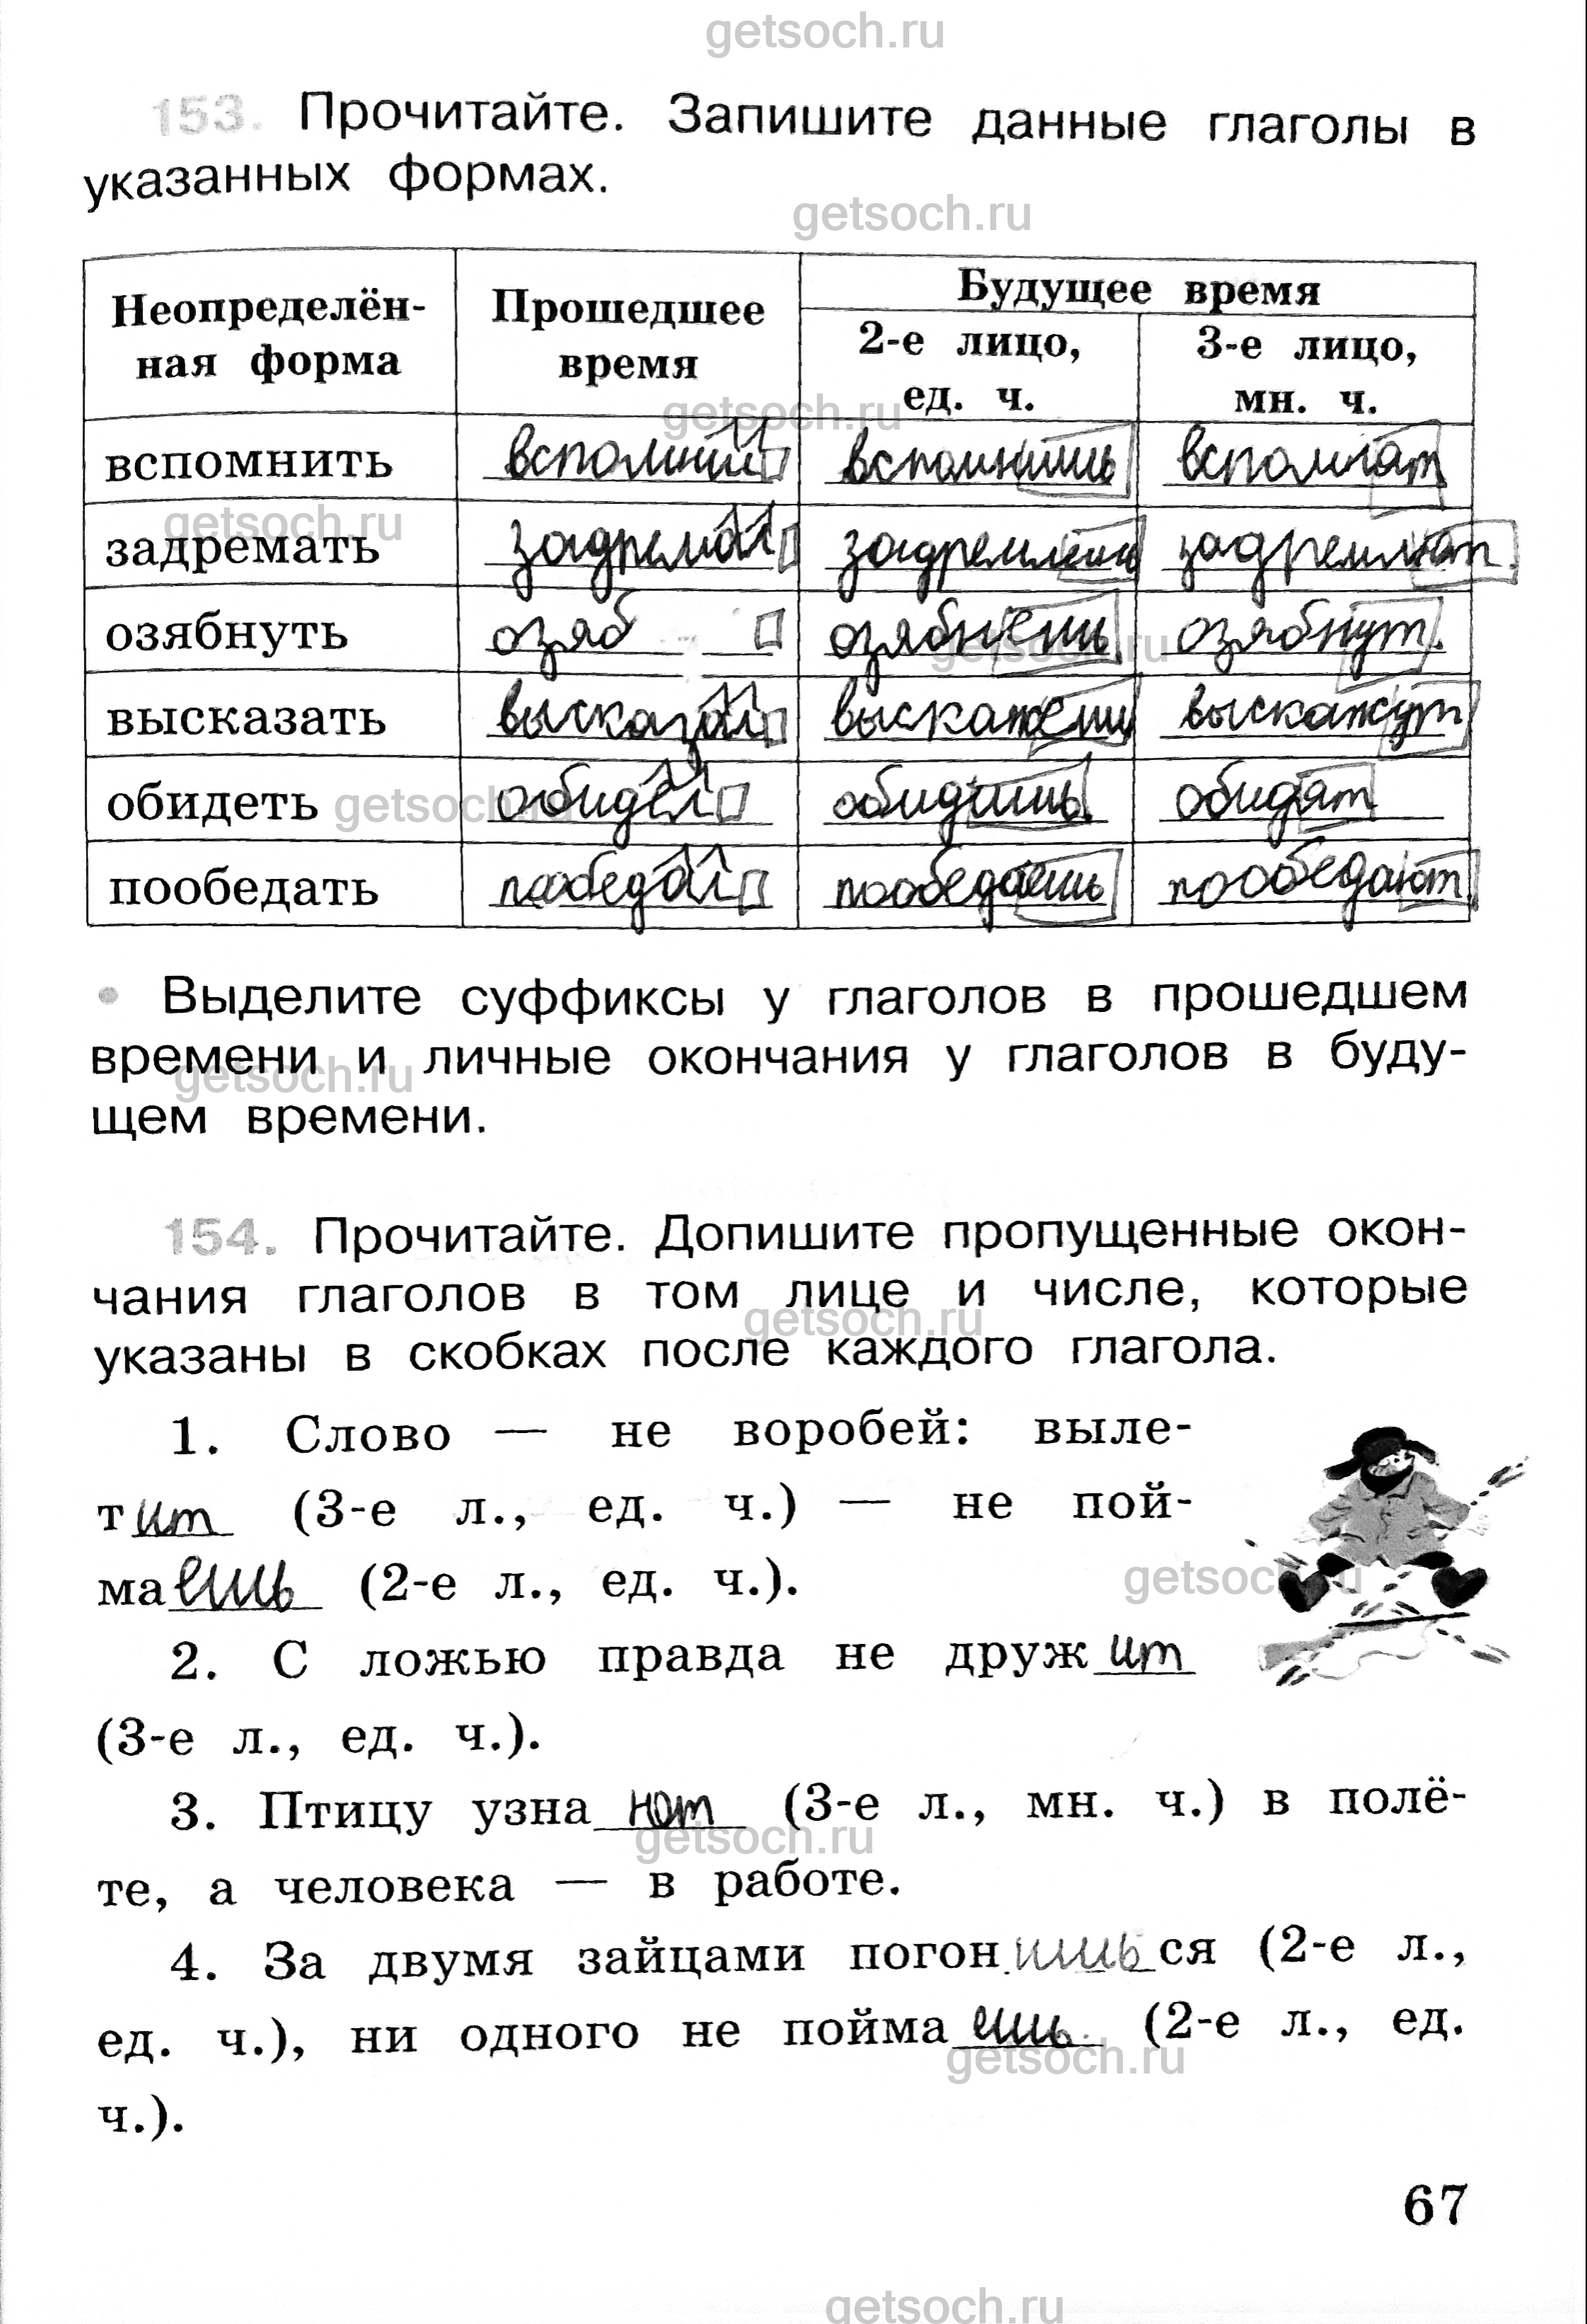 getsoch.ru
153. Прочитайте. Запишите данные глаголы в
указанных формах.
getsoch.ru
Неопределён-
ная форма
Прошедшее
время
Будущее время
2-е лицо,
ед. ч.
3-е лицо,
мн. ч.
getsoch.ru
вспомнить вспомнил вспомнишь вспомнят
getsoch.ru
задремать задремал задремлешь задремлют
озябнуть озяб озябнешь озябнут
getsoch.ru
высказать высказал выскажешь выскажут
обидеть обидел обидишь обидят
getsoch.ru
пообедать пообедал пообедаешь пообедают
• Выделите суффиксы у глаголов в прошедшем
времени и личные окончания у глаголов в буду-
getsoch.ru
щем времени.
154. Прочитайте. Допишите пропущенные окон-
чания глаголов в том лице и числе, которые
getsoch.ru
указаны в скобках после каждого глагола.
1. Слово — не воробей: выле-
тит (3-е л., ед. ч.) — не пой-
маешь (2-е л., ед. ч.).
getsoch.ru
2. С ложью правда не дружит
(3-е л., ед. ч.).
3. Птицу узнают (3-е л., мн. ч.) в полё-
getsoch.ru
те, а человека — в работе.
4. За двумя зайцами погонишься (2-е л.,
ед. ч.), ни одного не поймаешь (2-е л., ед.
getsoch.ru
ч.).
67
getsoch.ru